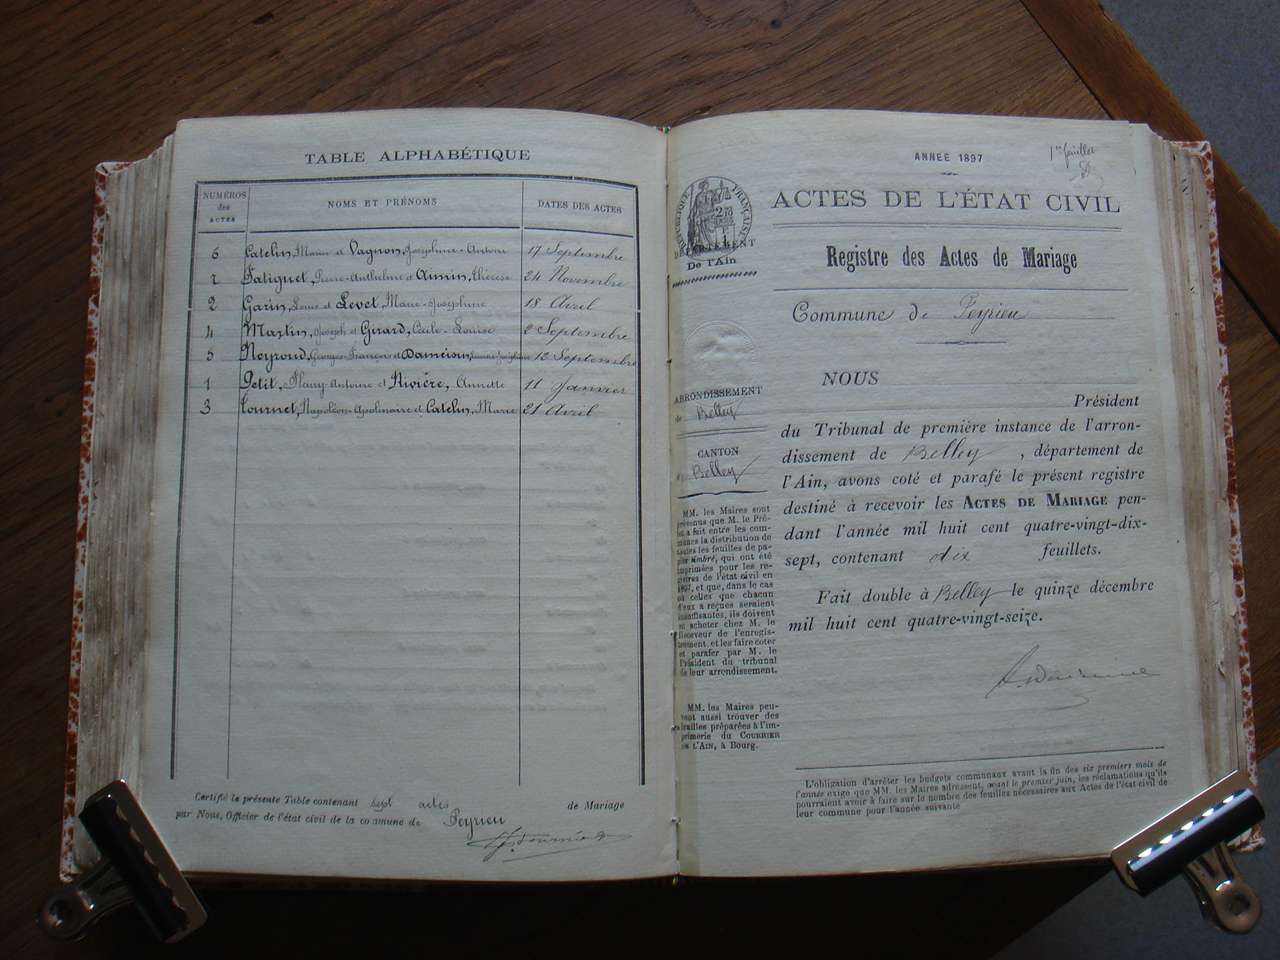 TABLE ALPHABÉTIQUE
NUMÉROS des ACTES
NOMS ET PRÉNOMS
DATES DES ACTES
6 Catelin, Marin et Vagnon, Joséphine-Antoni 17 Septembre
7 Fatiguet, Pierre-Anthelme et Aimin, Thérèse 24 Novembre
2 Garin, Louis et Levet, Marie-Joséphine 18 Avril
4 Martin, Joseph et Girard, Cécile-Louise 2 Septembre
5 Neyroud, Georges-François et 12 Septembre
1 Petit, Fleury-Antoine et Rivière, Annette 11 Janvier
3 Tournet, Napoléon-Apolinaire et Catelin, Marie 21 Avril
Certifié le présente Table contenant sept actes de Mariage
par Nous, Officier de l'état civil de la commune de Peyrieu
ANNÉE 1897
1er feuillet
ACTES DE L'ÉTAT CIVIL
RÉPUBLIQUE FRANÇAISE
DÉPARTEMENT
De l'Ain
Registre des Actes de Mariage
Commune de Peyrieu
ARRONDISSEMENT
de Belley
CANTON
de Belley
MM. les Maires sont
prévenus que M. le Pré-
fet a fait entre les com-
munes la distribution de
toutes les feuilles de pa-
pier timbré, qui ont été
imprimées pour les re-
gistres de l'état civil en
1897, et que, dans le cas
où celles que chacun
d'eux a reçues seraient
insuffisantes, ils doivent
en acheter chez M. le
Receveur de l'enregis-
trement, et les faire coter
et parafer par M. le
Président du tribunal
de leur arrondissement.
MM. les Maires peu-
vent aussi trouver des
feuilles préparées à l'im-
primerie du COURRIER
DE L'AIN, à Bourg.
NOUS
Président
du Tribunal de première instance de l'arron-
dissement de Belley, département de
l'Ain, avons coté et parafé le présent registre
destiné à recevoir les ACTES DE MARIAGE pen-
dant l'année mil huit cent quatre-vingt-dix-
sept, contenant dix feuillets.
Fait double à Belley le quinze décembre
mil huit cent quatre-vingt-seize.
L'obligation d'arrêter les budgets communaux avant la fin des six premiers mois de
l'année exige que MM. les Maires adressent, avant le premier juin, les réclamations qu'ils
pourraient avoir à faire sur le nombre des feuilles nécessaires aux Actes de l'état civil de
leur commune pour l'année suivante